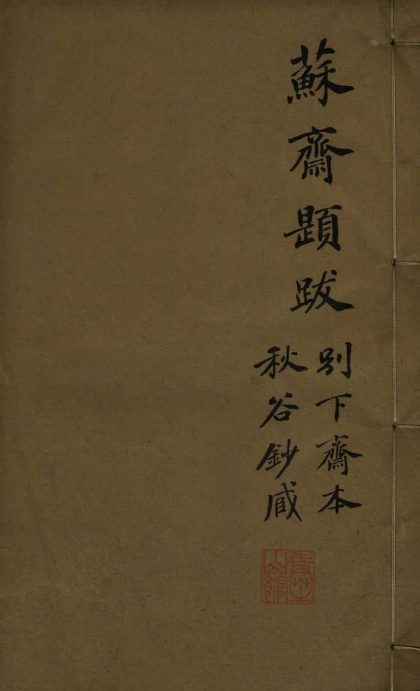 蘇齋題跋
別下齋本
秋谷鈔臧